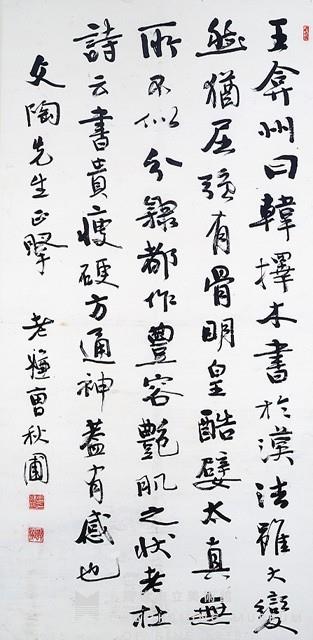 王弇州曰韓擇木書於漢法雖大變
然猶屈強有骨明皇酷嬖太真無
所不似分隸都作豐容艷肌之狀老杜
詩云書貴瘦硬方通神蓋有感也
文陶先生正
老嫌曾秋圃